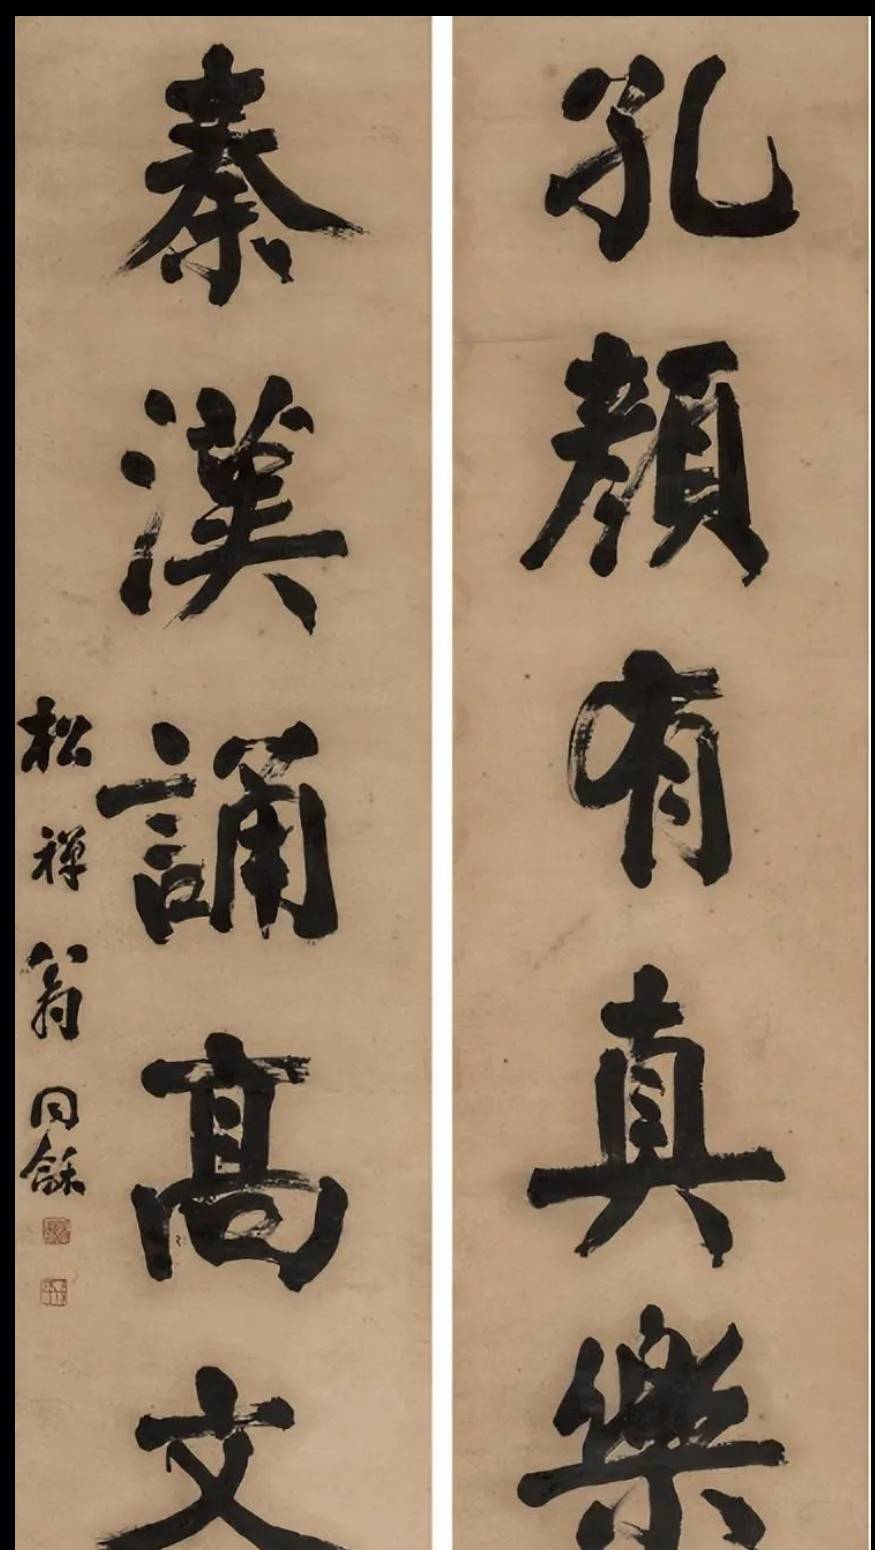 孔顏有真樂
秦漢誦高文
松禪翁同龢